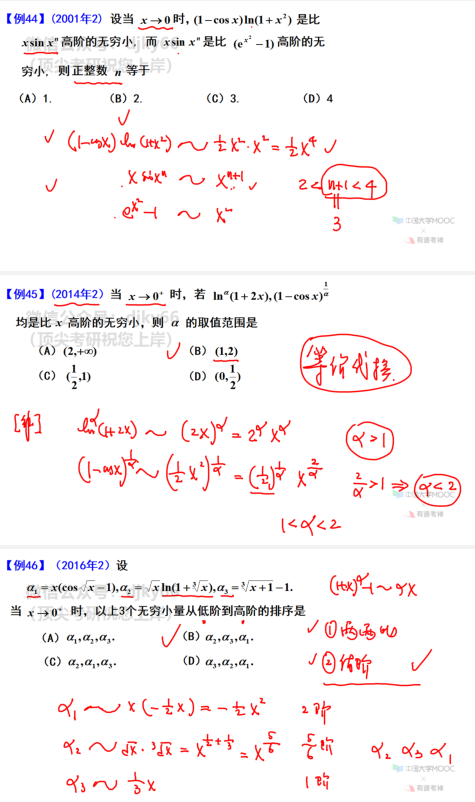 【例44】(2001年2) 设当 x→0 时, (1−cos x)ln(1+x²) 是比
x sin xⁿ 高阶的无穷小, 而 x sin xⁿ 是比 (e^{x²}−1) 高阶的无
穷小, 则正整数 n 等于
(A) 1. (B) 2. (C) 3. (D) 4
(1−cosx) ln(1+x²) ~ ½x²·x² = ½x⁴
x sin xⁿ ~ xⁿ⁺¹
2 < n+1 < 4
e^{x²}−1 ~ x²
3
中国大学MOOC
×
有道考神
【例45】(2014年2) 当 x→0⁺ 时, 若 ln^α(1+2x), (1−cos x)^{1/α}
均是比 x 高阶的无穷小, 则 α 的取值范围是
微信公众号: djky66
(顶尖考研祝您上岸)
(A) (2,+∞) (B) (1,2)
(C) (1/2,1) (D) (0,1/2)
等价代换
[解] ln^α(1+2x) ~ (2x)^α = 2^α x^α
α>1
(1−cosx)^{1/α} ~ (½x²)^{1/α} = (½)^{1/α} x^{2/α}
2/α>1 ⇒ α<2
1<α<2
中国大学MOOC
×
有道考神
【例46】(2016年2) 设
α₁ = x(cos√x−1), α₂ = √x ln(1+∛x), α₃ = ∛(x+1)−1.
当 x→0⁺ 时, 以上3个无穷小量从低阶到高阶的排序是
(1+x)^α−1 ~ αx
(A) α₁,α₂,α₃. (B) α₂,α₃,α₁.
(C) α₂,α₁,α₃. (D) α₃,α₂,α₁.
① 两两比
② 结阶
α₁ ~ x(−½x) = −½x² 2阶
α₂ ~ √x·∛x = x^{1/2+1/3} = x^{5/6} 5/6阶
α₂ α₃ α₁
α₃ ~ ⅓x 1阶
中国大学MOOC
×
有道考神